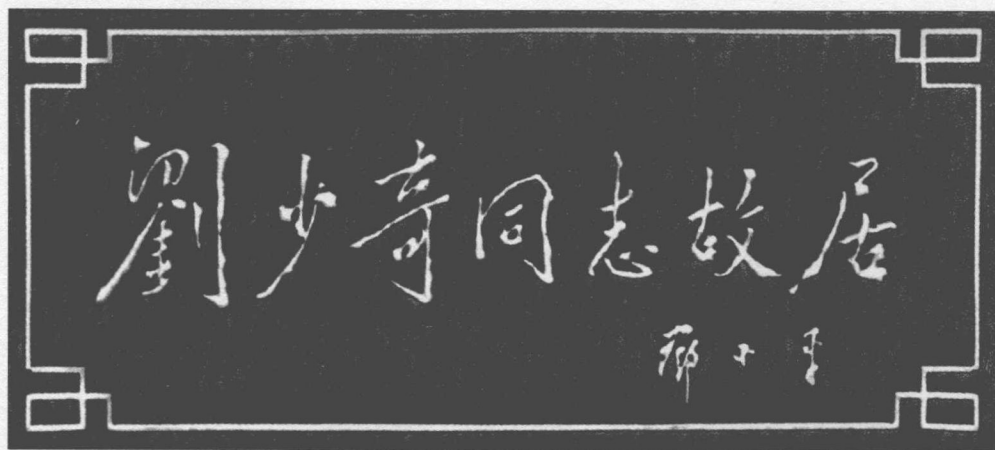 劉少奇同志故居
鄧小平